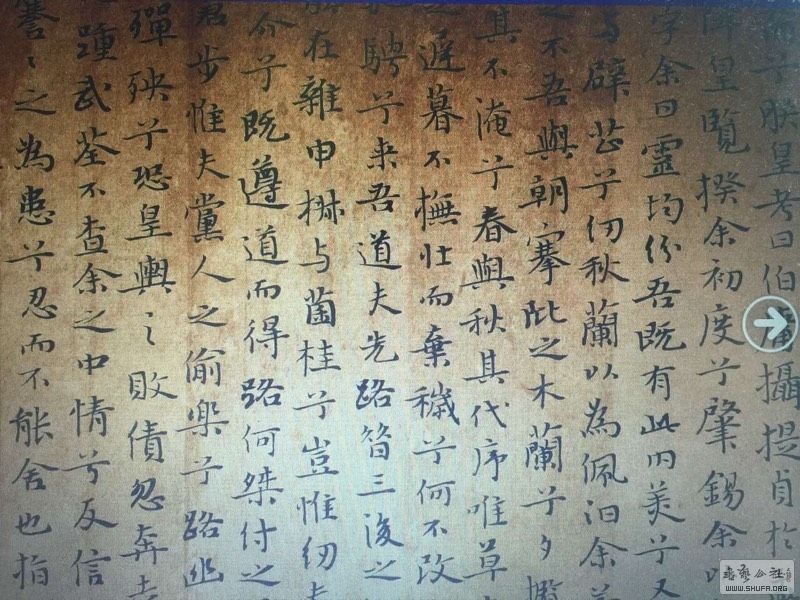 兮朕皇考曰伯庸攝提貞於
降皇覽揆余初度兮肇錫余
字余曰靈均紛吾既有此內美兮又
与辟芷兮紉秋蘭以為佩汨余若
之不吾與朝搴阰之木蘭兮夕攬
其不淹兮春與秋其代序唯草
遲暮不撫壯而棄穢兮何不改
騁兮来吾道夫先路昔三後之
在雜申椒与菌桂兮豈惟紉
介兮既遵道而得路何桀紂之
窘步惟夫黨人之偷樂兮路幽
殫殃兮恐皇輿之敗績忽奔走
踵武荃不查余之中情兮反信
謇〻之為患兮忍而不能舍也指
WWW.SHUFA.ORG